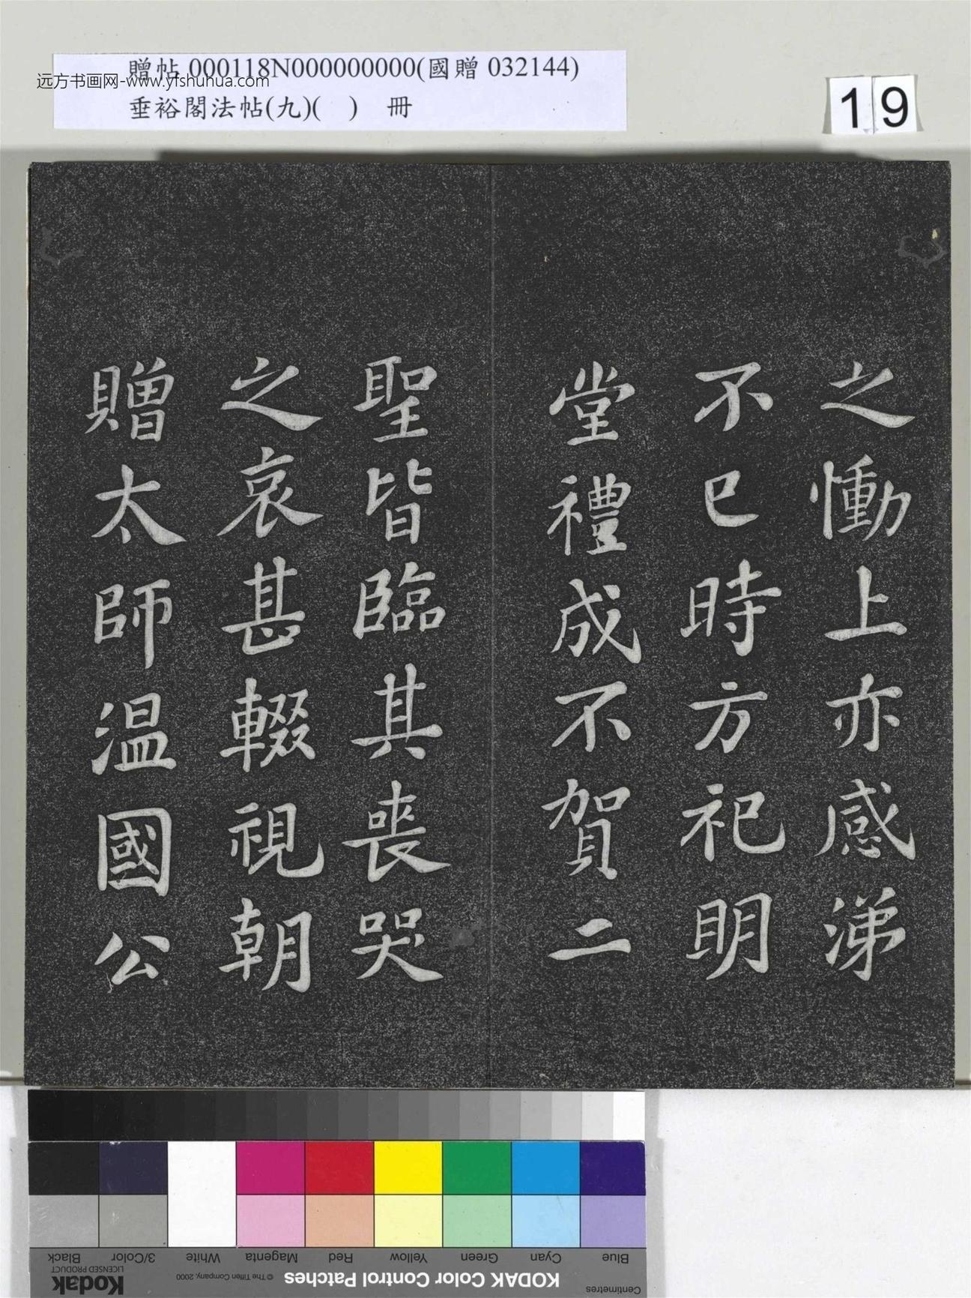 贈帖 000118N000000000(國贈 032144)
远方书画网-www.yishuhua.com
垂裕閣法帖(九)(　)　冊
19
之慟上亦感涕
不已時方祀明
堂禮成不賀二
聖皆臨其喪哭
之哀甚輟視朝
贈太師温國公
Blue Cyan Green Yellow Red Magenta White 3/Color Black
Centimetres
KODAK Color Control Patches
© The Tiffen Company, 2000
Kodak
LICENSED PRODUCT